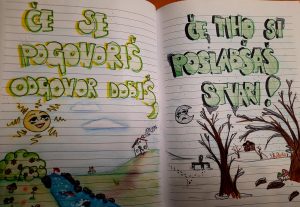 ČE SE
POGOVORIŠ
ODGOVOR DOBIŠ
ČE TIHO SI
POSLABŠAŠ
STVARI!